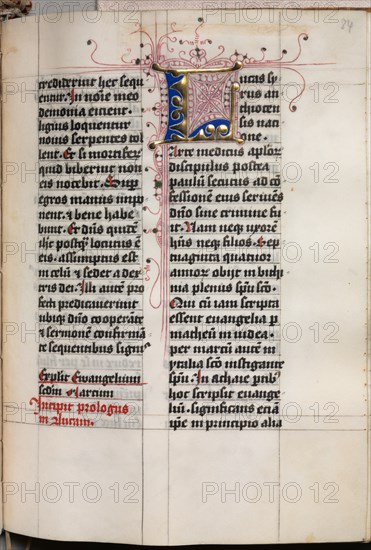 24
crediderint hec sequ
entur. In noie meo
demonia eicient.
liguis loquentur
nouis serpentes tol
lent. Et si mortiferū
quid biberint non
eis nocebit. Sup
egros manus impo
nent. & bene habe
bunt. Et dūs quidē
ihc postq̄ locutus ē
eis. assumptus est
in celū & sedet a dex
tris dei. Illi autē pro
fecti predicauerunt
ubiq dūo coopeāte
& sermonē confirmā
te sequentibus signis
Explicit Ewangelium
scdm Marcum
Incipit prologus
in Lucam.
Lucas sy
rus an
thiocen
sis nati
one.
Arte medicus aploꝝ
discipulus postea
paulū secutus ad cō
fessionē eius seruiēs
dūo sine crimine fu
it. Nam neq uxorē
hūs neq filios. Sep
tuaginta quatuor
annoꝝ obijt in bithi
nia plenus spū sco.
Qui cū iam scripta
essent euangelia p
matheū in iudea.
per marcū autē in
ytalia sco instigante
spū. In achaie ptib
hoc scripsit euange
liū. significans etiā
ipe in principio alia